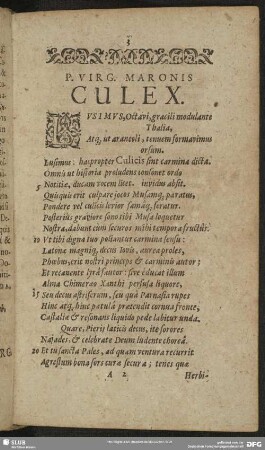 3
P. VIRG. MARONIS
CULEX.
LVSIMVS, Octavi, gracili modulante
Thalia,
Atq, ut araneoli, tenuem formavimus
orsum.
Lusimus: hac propter Culicis sint carmina dicta.
Omnis ut historia praeludens consonet ordo
5 Notitiae, ducam vocem licet. invidus absit.
Quisquis erit culpare jocos Musamq, paratus,
Pondere vel culicis levior famaq, feratur.
Posterius graviore sono tibi Musa loquetur
Nostra, dabunt cum securos mihi tempora fructus.
10 Vt tibi digna tuo poliantur carmina sensu:
Latona magniq, decus Iovis, aurea proles,
Phoebus, erit nostri princeps & carminis autor;
Et recanente lyra fautor: sive educat illum
Alma Chimaereo Xanthi perfusa liquore,
15 Seu decus astriferum, seu qua Parnasia rupes
Hinc atq, hinc patula praepandit cornua fronte,
Castaliae & resonans liquido pede labitur unda.
Quare, Pierii laticis decus, ite sorores
Najades, & celebrate Deum ludente choreâ.
20 Et tu sancta Pales, ad quam ventura recurrit
Agrestum bona sors curae secura; tenes quae
A 2
Herbi-